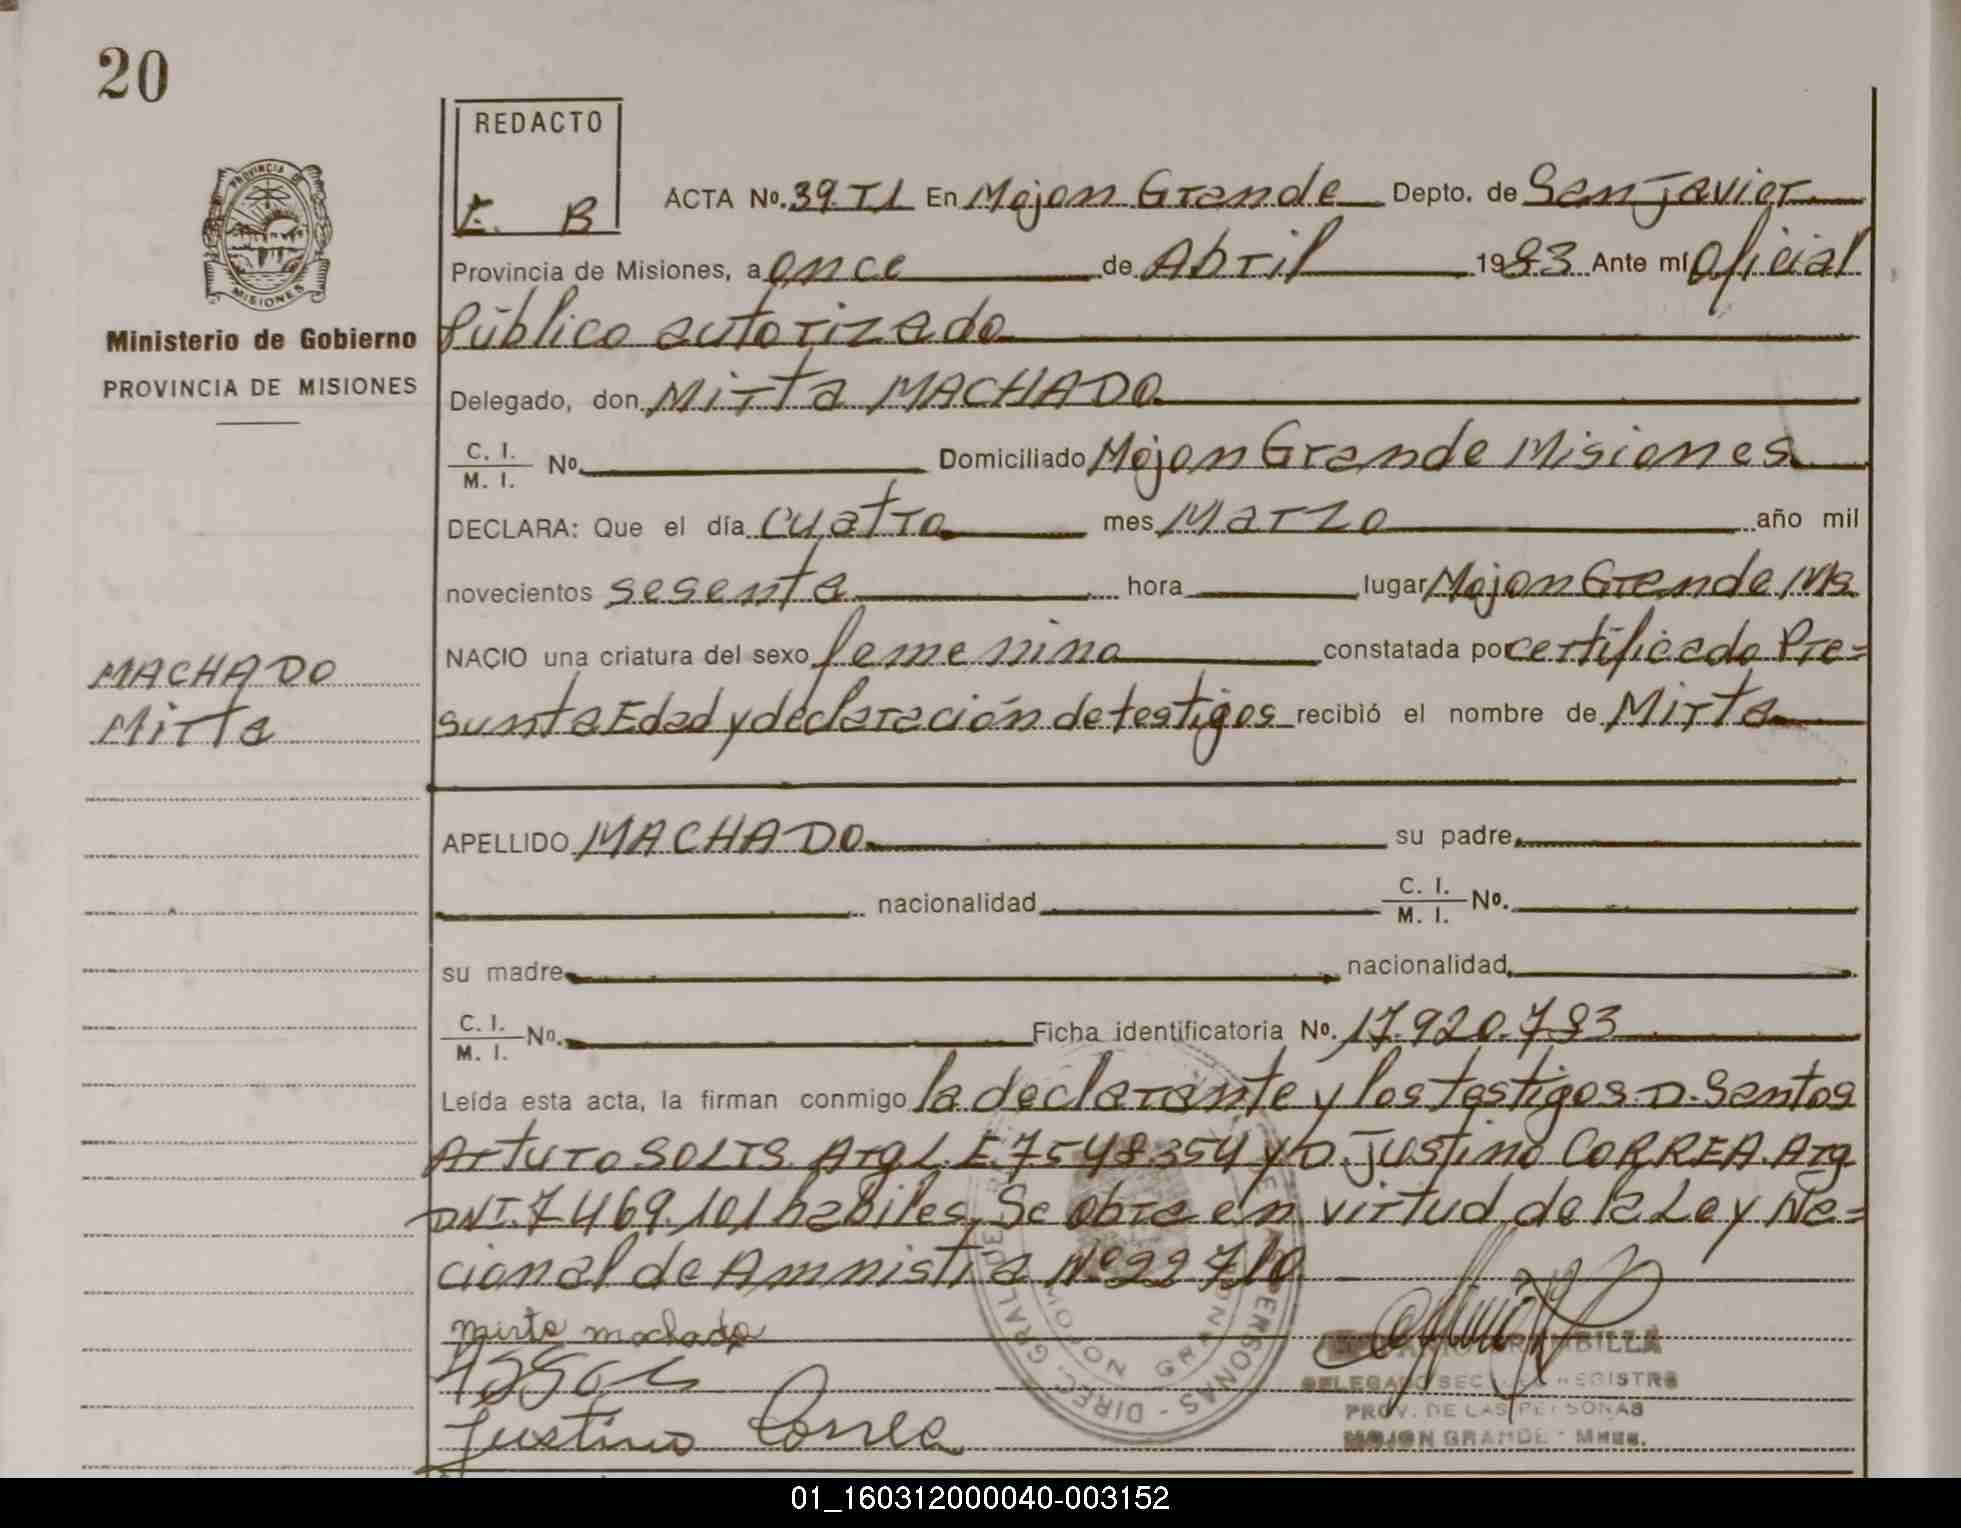 20
REDACTO
E. B
PROVINCIA DE
MISIONES
ACTA No. 39. T1 En Mojon Grande Depto. de San Javier
Provincia de Misiones, a once de Abril 1983 Ante mí Oficial
Ministerio de Gobierno
Público autorizado
PROVINCIA DE MISIONES
Delegado, don Mirta MACHADO
C. I. / M. I. No. Domiciliado Mojon Grande Misiones
DECLARA: Que el día cuatro mes Marzo año mil
novecientos sesenta hora lugar Mojon Grande Ms
NACIO una criatura del sexo femenino constatada por certificado Pre=
MACHADO
Mirta
sunta Edad y declaración de testigos recibió el nombre de Mirta
APELLIDO MACHADO su padre
nacionalidad C. I. / M. I. No.
su madre nacionalidad
C. I. / M. I. No. Ficha identificatoria No. 17.920.783
Leída esta acta, la firman conmigo la declarante y los testigos D. Santos
Arturo SOLIS. Arg L.E. 7548354 y D. Justino CORREA. Arg
DNI. 7469.101 habiles, Se obra en virtud de la Ley Na=
cional de Amnistia Nº 22710
Mirta machado
Justino Correa
DIREC. GRAL. DE PERSONAS
MOJON GRANDE
DELEGADO SECC. REGISTRO
PROV. DE LAS PERSONAS
MOJON GRANDE - Mnes.
01_160312000040-003152